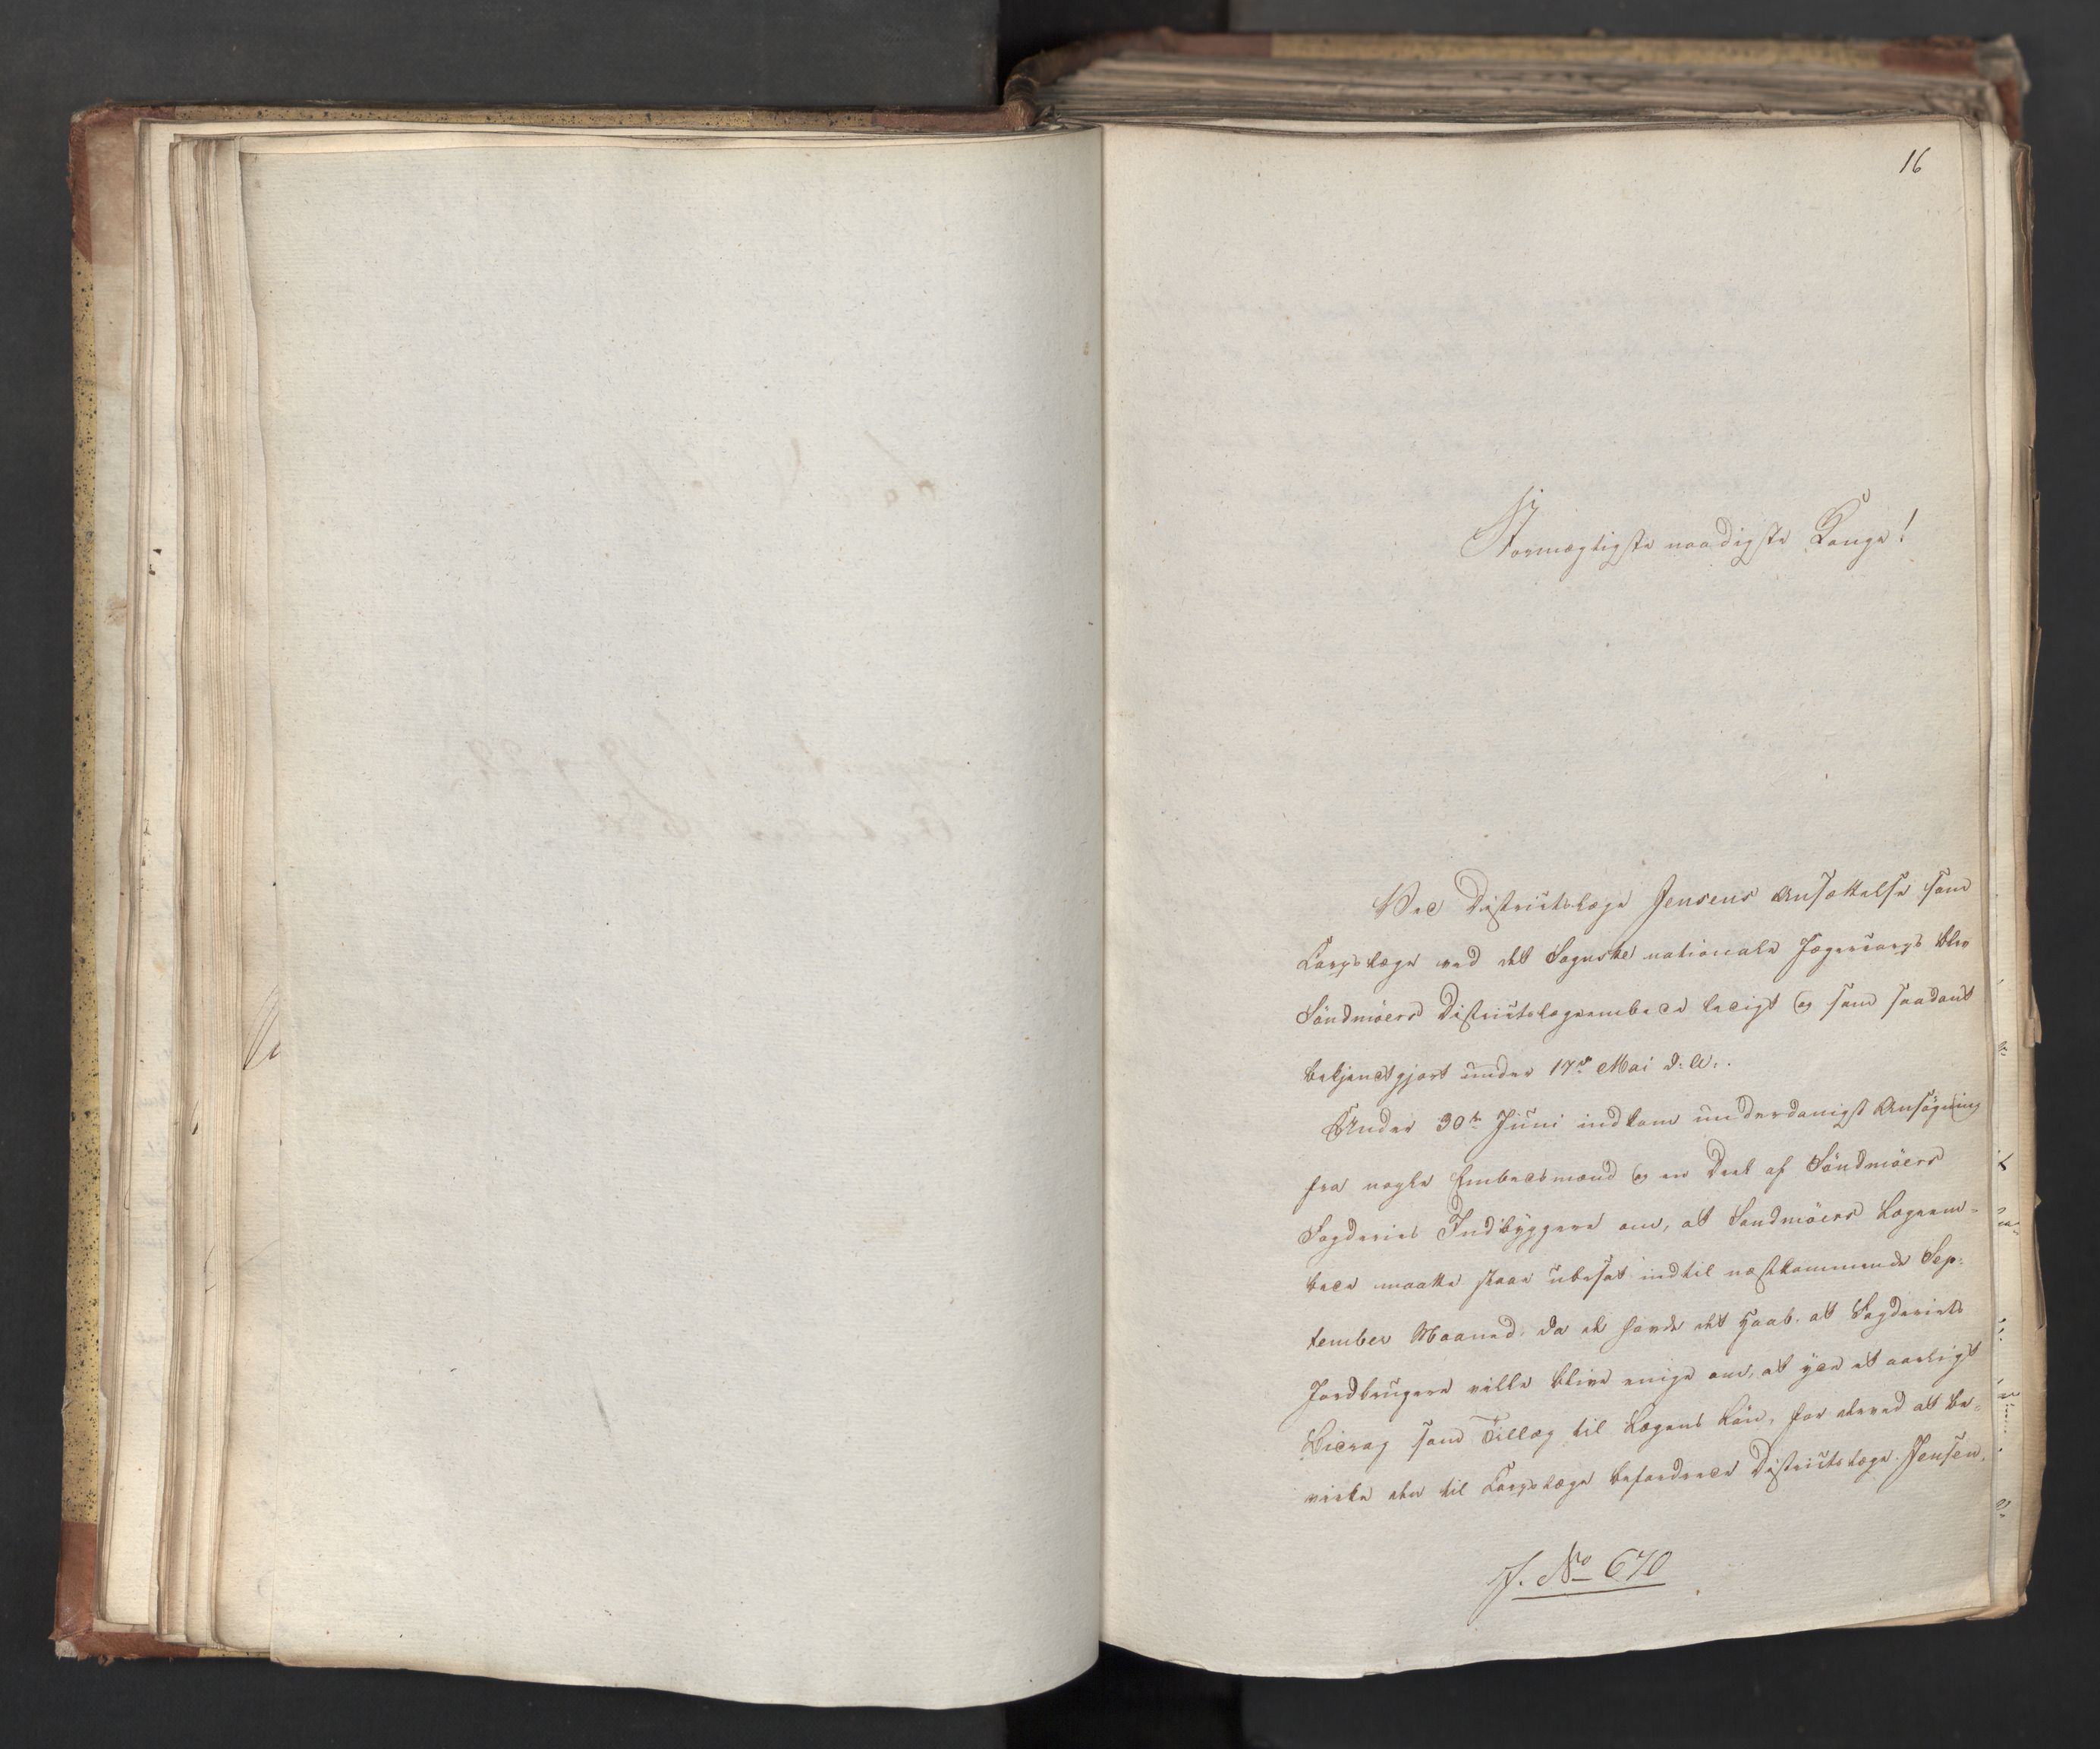 16
Stormægtigste naadigste Konge!
Ved Districtslæge Jensens Ansættelse som
Corpslæge ved det Sognske nationale Jægercorps blev
Söndmöers Districtslægeembede ledigt og som saadant
bekjendtgjort under 17de Mai d: A:.
Under 30te Juni indkom underdanigst Ansögning
fra nogle Embedsmænd og en Deel af Söndmöers
Fogderies Indbyggere om, at Söndmöers Lægeem-
bede maatte staae ubesat indtil næstkommende Sep-
tember Maaned, da de havde det Haab, at Fogderiets
Jordbrugere ville blive enige om, at yde et aarligt
Bidrag som Tillæg til Lægens Lön, for derved at be-
virke den til Corpslæge befordrede Districtslæge Jensen,
J. No 670